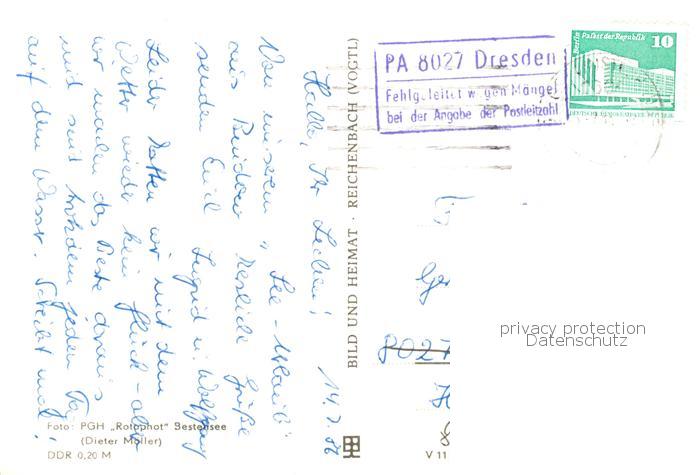 Hallo, Ihr Lieben! 14.7.86
Von unserem "See-Urlaub"
aus Prieros herzliche Grüße
senden Euch Ingrid u. Wolfgang
Leider hatten wir mit dem
Wetter wieder kein Glück - aber
wir machen das Beste draus
und sind trotzdem jeden Tag
auf dem Wasser. Schreibt mal!
Foto: PGH „Rotophot“ Bestensee
(Dieter Möller)
DDR 0,20 M
BILD UND HEIMAT · REICHENBACH (VOGTL)
V 11
PA 8027 Dresden
Fehlgeleitet wegen Mängel
bei der Angabe der Postleitzahl
Berlin Palast der Republik
10
DEUTSCHE DEMOKRATISCHE REPUBLIK
8027
privacy protection
Datenschutz